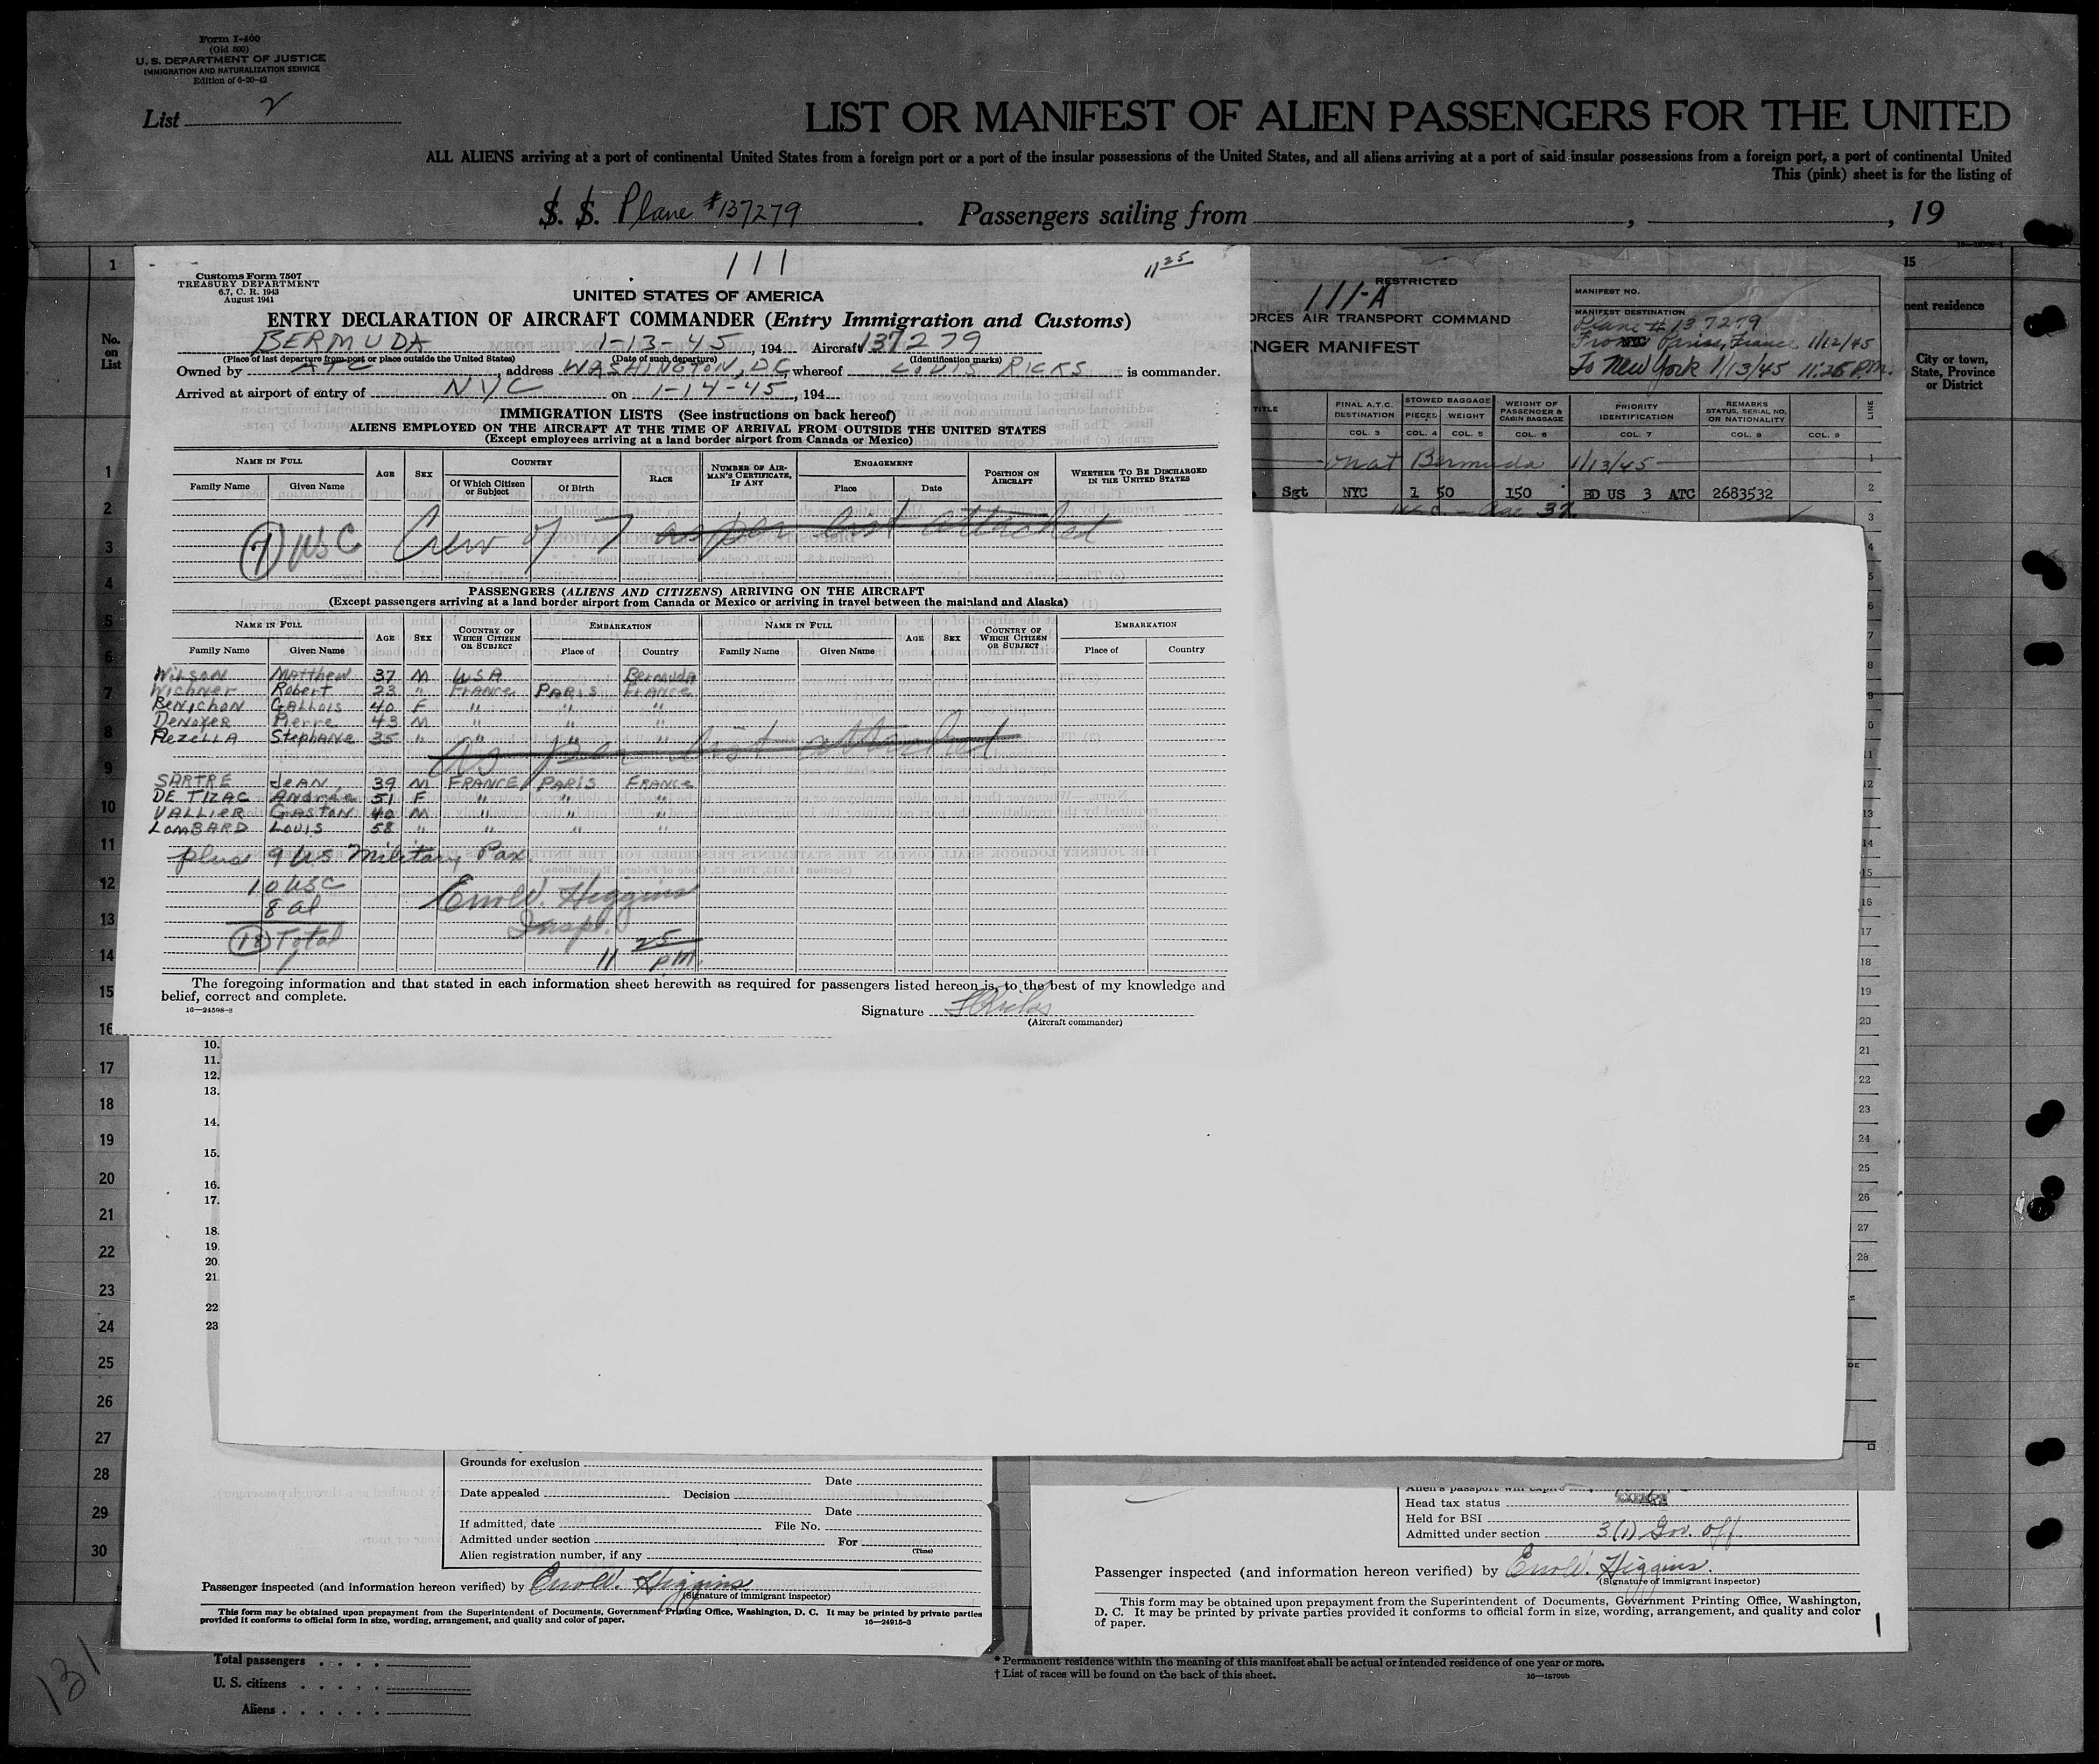 Form I-400
(Old 500)
U. S. DEPARTMENT OF JUSTICE
IMMIGRATION AND NATURALIZATION SERVICE
Edition of 6-20-42
List 2
LIST OR MANIFEST OF ALIEN PASSENGERS FOR THE UNITED
ALL ALIENS arriving at a port of continental United States from a foreign port or a port of the insular possessions of the United States, and all aliens arriving at a port of said insular possessions from a foreign port, a port of continental United
This (pink) sheet is for the listing of
S. S. Plane #137279 . Passengers sailing from , , 19
111
11 25
Customs Form 7507
TREASURY DEPARTMENT
6.7, C. R. 1943
August 1941
UNITED STATES OF AMERICA
ENTRY DECLARATION OF AIRCRAFT COMMANDER (Entry Immigration and Customs)
BERMUDA 1-13-45, 194 Aircraft 137279
(Place of last departure from port or place outside the United States) (Date of such departure) (Identification marks)
Owned by ATC, address WASHINGTON, DC, whereof LOUIS RICKS is commander.
Arrived at airport of entry of NYC on 1-14-45, 194
IMMIGRATION LISTS (See instructions on back hereof)
ALIENS EMPLOYED ON THE AIRCRAFT AT THE TIME OF ARRIVAL FROM OUTSIDE THE UNITED STATES
(Except employees arriving at a land border airport from Canada or Mexico)
NAME IN FULL AGE SEX COUNTRY RACE NUMBER OF AIRMAN'S CERTIFICATE, IF ANY ENGAGEMENT POSITION ON AIRCRAFT WHETHER TO BE DISCHARGED IN THE UNITED STATES
Family Name Given Name Of Which Citizen or Subject Of Birth Place Date
7 USC Crew of 7 as per list attached
PASSENGERS (ALIENS AND CITIZENS) ARRIVING ON THE AIRCRAFT
(Except passengers arriving at a land border airport from Canada or Mexico or arriving in travel between the mainland and Alaska)
NAME IN FULL AGE SEX COUNTRY OF WHICH CITIZEN OR SUBJECT EMBARKATION NAME IN FULL AGE SEX COUNTRY OF WHICH CITIZEN OR SUBJECT EMBARKATION
Family Name Given Name Place of Country Family Name Given Name Place of Country
WILSON Matthew 37 M USA Bermuda
Wichner Robert 23 " France PARIS France
BENICHON GALLOIS 40 F " " "
DENOYER Pierre 43 M " " "
PEZELLA Stephane 35 " " " "
as per list attached
SARTRE JEAN 39 M FRANCE PARIS FRANCE
DE TIZAC Andrée 51 F " " "
VALLIER GASTON 40 M " " "
LOMBARD LOUIS 58 " " " "
plus 9 US Military Pax.
10 USC
8 al
18 Total
Higgins
Inspt.
11 25 pm.
The foregoing information and that stated in each information sheet herewith as required for passengers listed hereon is, to the best of my knowledge and
belief, correct and complete.
16—24598-3
Signature L Ricks
(Aircraft commander)
RESTRICTED
111-A
ORCES AIR TRANSPORT COMMAND
NGER MANIFEST
MANIFEST NO.
MANIFEST DESTINATION
Plane # 137279
From Paris, France 1/12/45
To New York 1/13/45 11:25 P.M.
TITLE FINAL A.T.C. DESTINATION STOWED BAGGAGE PIECES WEIGHT WEIGHT OF PASSENGER & CABIN BAGGAGE PRIORITY IDENTIFICATION REMARKS STATUS, SERIAL NO. OR NATIONALITY LINE
COL. 3 COL. 4 COL. 5 COL. 6 COL. 7 COL. 8 COL. 9
on at Bermuda 1/13/45
Sgt NYC 1 50 150 BD US 3 ATC 2683532
Age 37
15
nent residence
City or town, State, Province or District
No. on List
1
2
3
4
5
6
7
8
9
10
11
12
13
14
15
16
17
18
19
20
21
22
23
24
25
26
27
28
29
30
10.
11.
12.
13.
14.
15.
16.
17.
18.
19.
20.
21.
22
23
Grounds for exclusion
Date
Date appealed Decision
Date
If admitted, date File No.
Admitted under section For
(Time)
Alien registration number, if any
Passenger inspected (and information hereon verified) by Higgins
(Signature of immigrant inspector)
This form may be obtained upon prepayment from the Superintendent of Documents, Government Printing Office, Washington, D. C. It may be printed by private parties
provided it conforms to official form in size, wording, arrangement, and quality and color of paper.
16—24915-3
Alien's passport will expire
Head tax status EXEMPT
Held for BSI
Admitted under section 3(1) Gov. Off.
Passenger inspected (and information hereon verified) by Higgins.
(Signature of immigrant inspector)
This form may be obtained upon prepayment from the Superintendent of Documents, Government Printing Office, Washington,
D. C. It may be printed by private parties provided it conforms to official form in size, wording, arrangement, and quality and color
of paper.
Total passengers
U. S. citizens
Aliens
* Permanent residence within the meaning of this manifest shall be actual or intended residence of one year or more.
† List of races will be found on the back of this sheet.
16—18709b
131